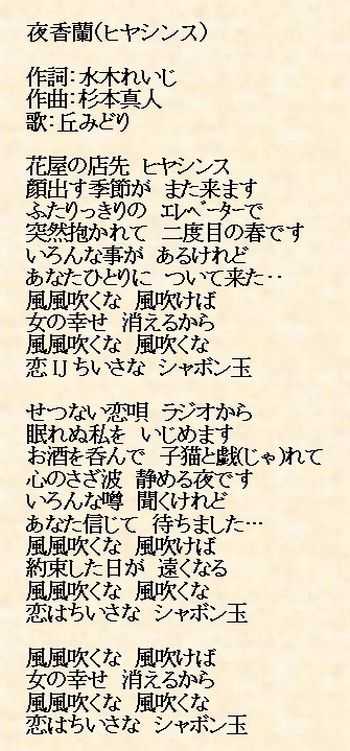 夜香蘭(ヒヤシンス)
作詞：水木れいじ
作曲：杉本真人
歌：丘みどり
花屋の店先　ヒヤシンス
顔出す季節が　また来ます
ふたりっきりの　エレベーターで
突然抱かれて　二度目の春です
いろんな事が　あるけれど
あなたひとりに　ついて来た‥
風風吹くな　風吹けば
女の幸せ　消えるから
風風吹くな　風吹くな
恋IJちいさな　シャボン玉
せつない恋唄　ラジオから
眠れぬ私を　いじめます
お酒を呑んで　子猫と戯(じゃ)れて
心のさざ波　静める夜です
いろんな噂　聞くけれど
あなた信じて　待ちました…
風風吹くな　風吹けば
約束した日が　遠くなる
風風吹くな　風吹くな
恋はちいさな　シャボン玉
風風吹くな　風吹けば
女の幸せ　消えるから
風風吹くな　風吹くな
恋はちいさな　シャボン玉